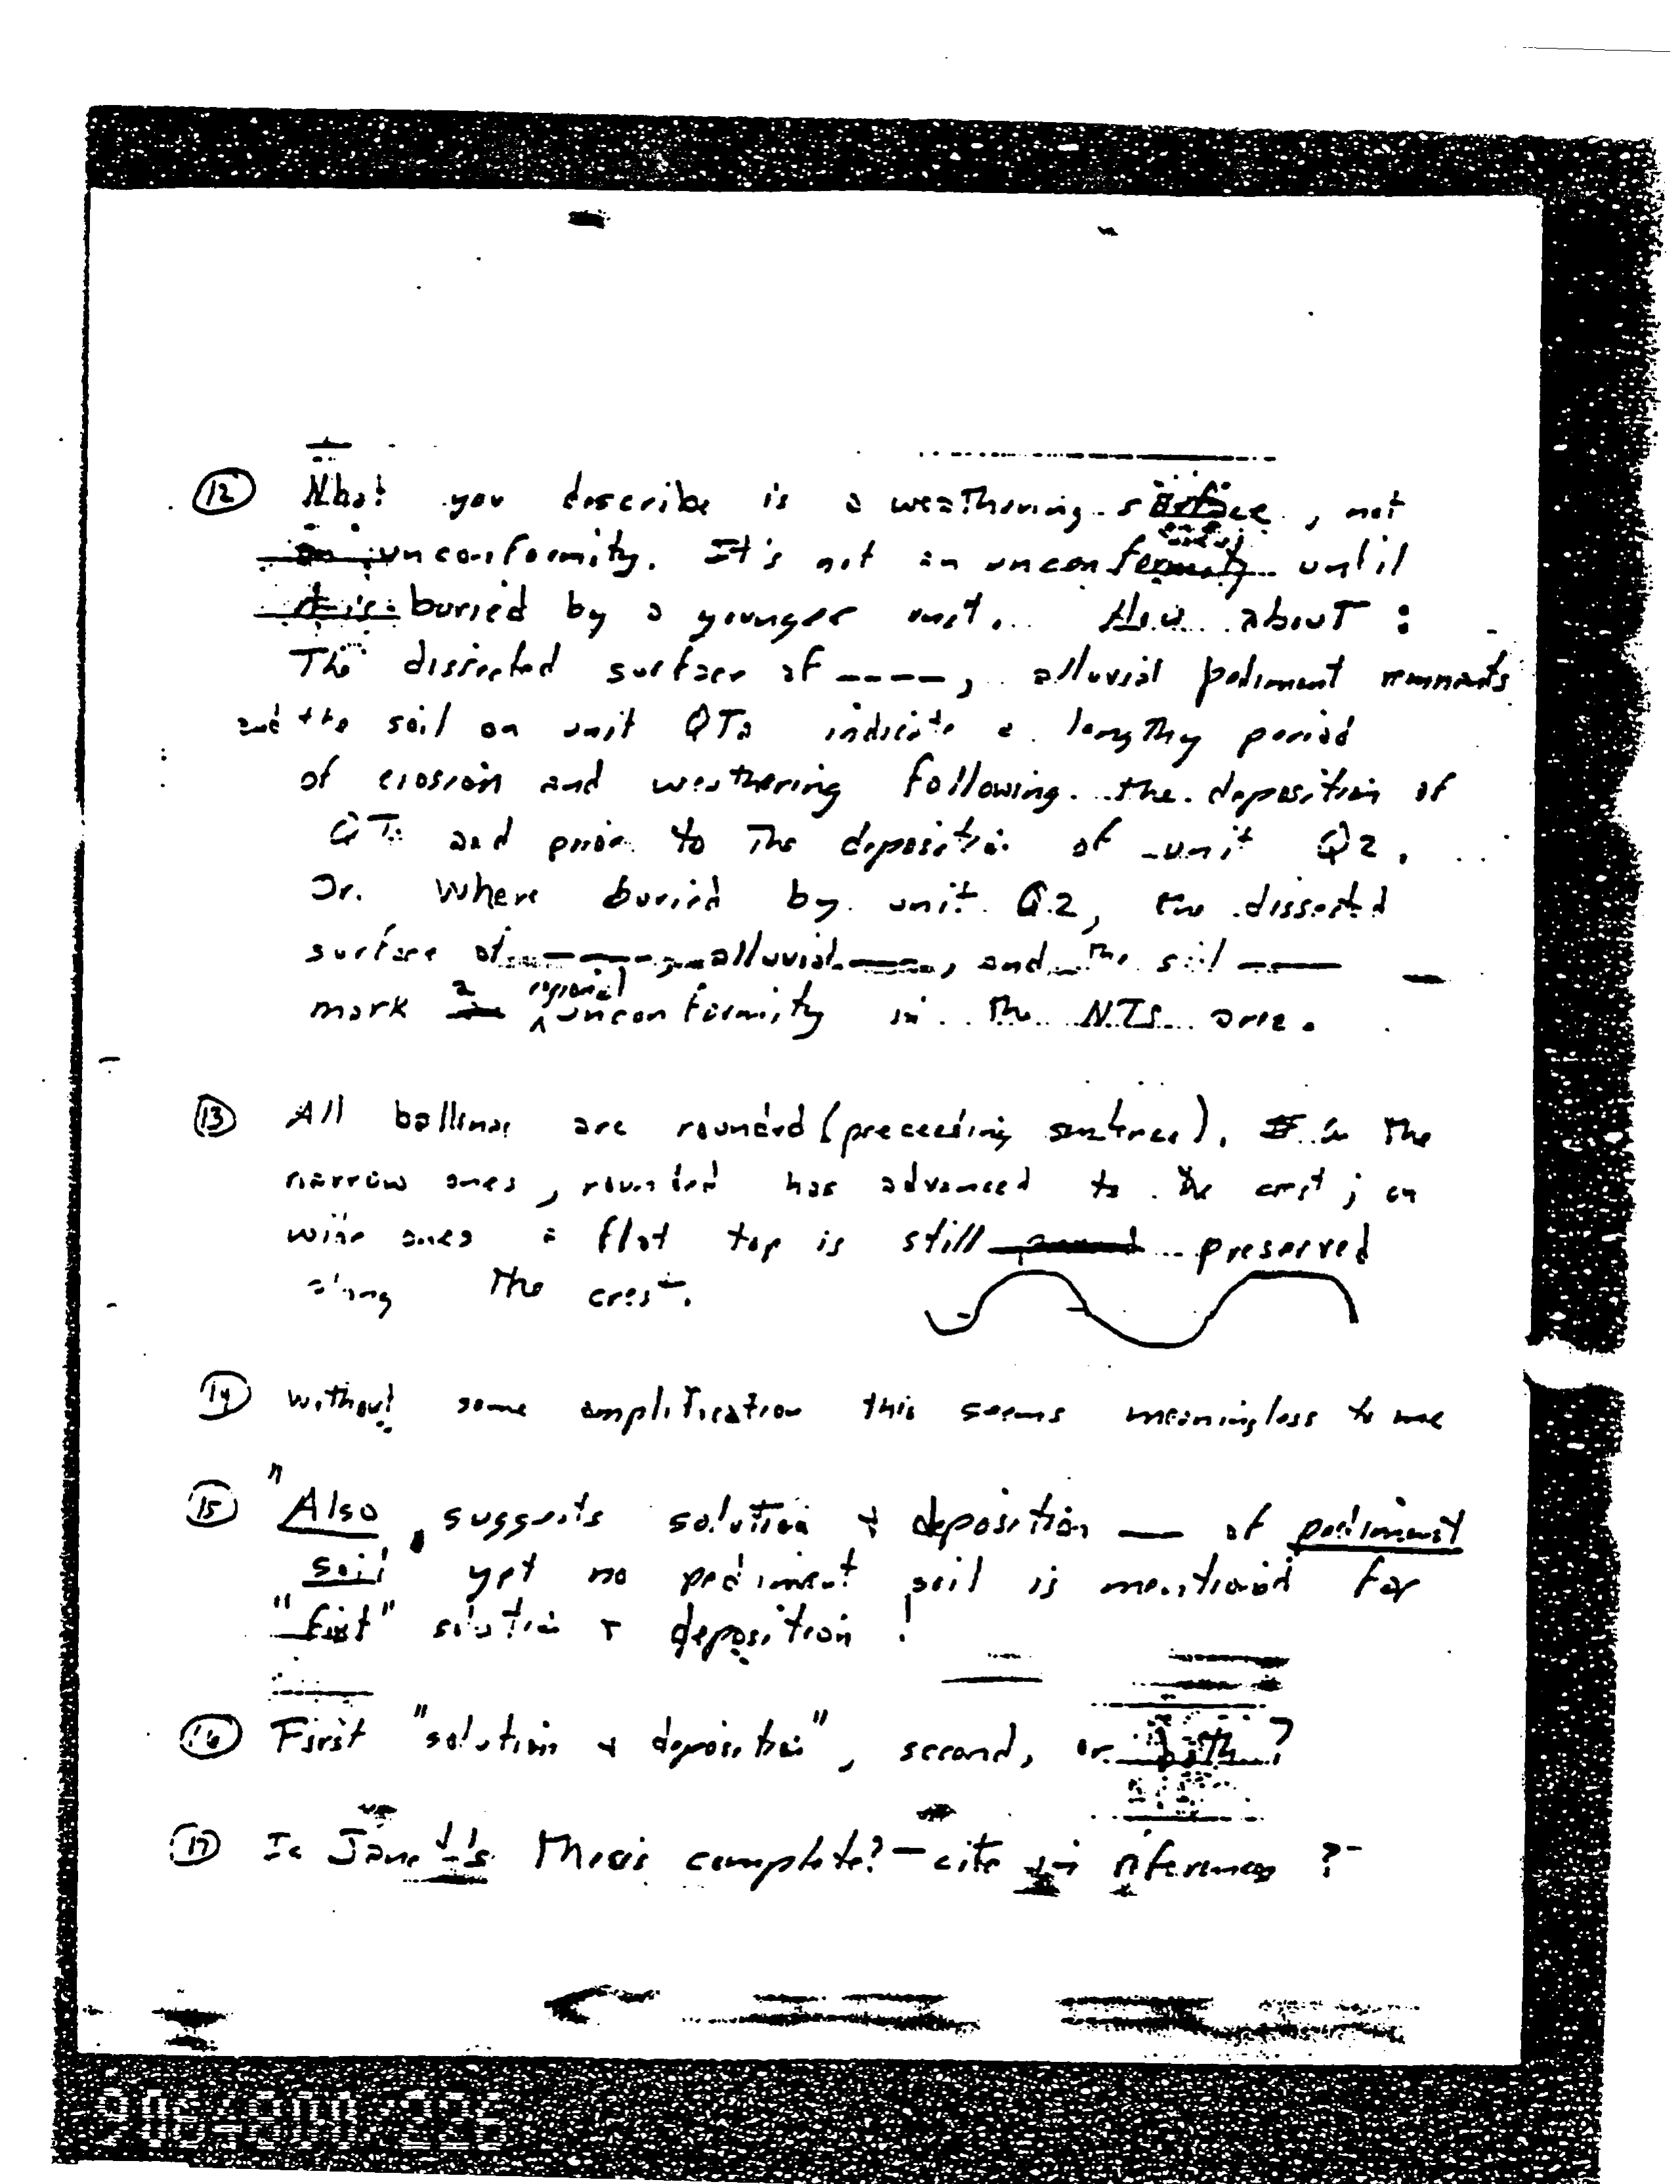 (12) What you describe is a weathering surface, not
an unconformity. It's not an unconformity until
it is buried by a younger unit. How about:
The dissected surface of ----, alluvial pediment remnants
and the soil on unit QTa indicate a lengthy period
of erosion and weathering following the deposition of
QTa and prior to the deposition of unit Q2.
Or. Where buried by unit Q2, the dissected
surface of — — alluvial —, and the soil —
mark a regional unconformity in the NTS area.
(13) All ballinas are rounded (preceeding sentence). In the
narrow ones, rounded has advanced to the crest; on
wide ones a flat top is still preserved
along the crest.
(14) Without some amplification this seems meaningless to me
(15) "Also, suggests solution + deposition — of pediment
soil yet no pediment soil is mentioned for
"first" solution + deposition!
(16) First "solution + deposition", second, or both?
(17) Is Janet's Thesis complete? — cite in references?